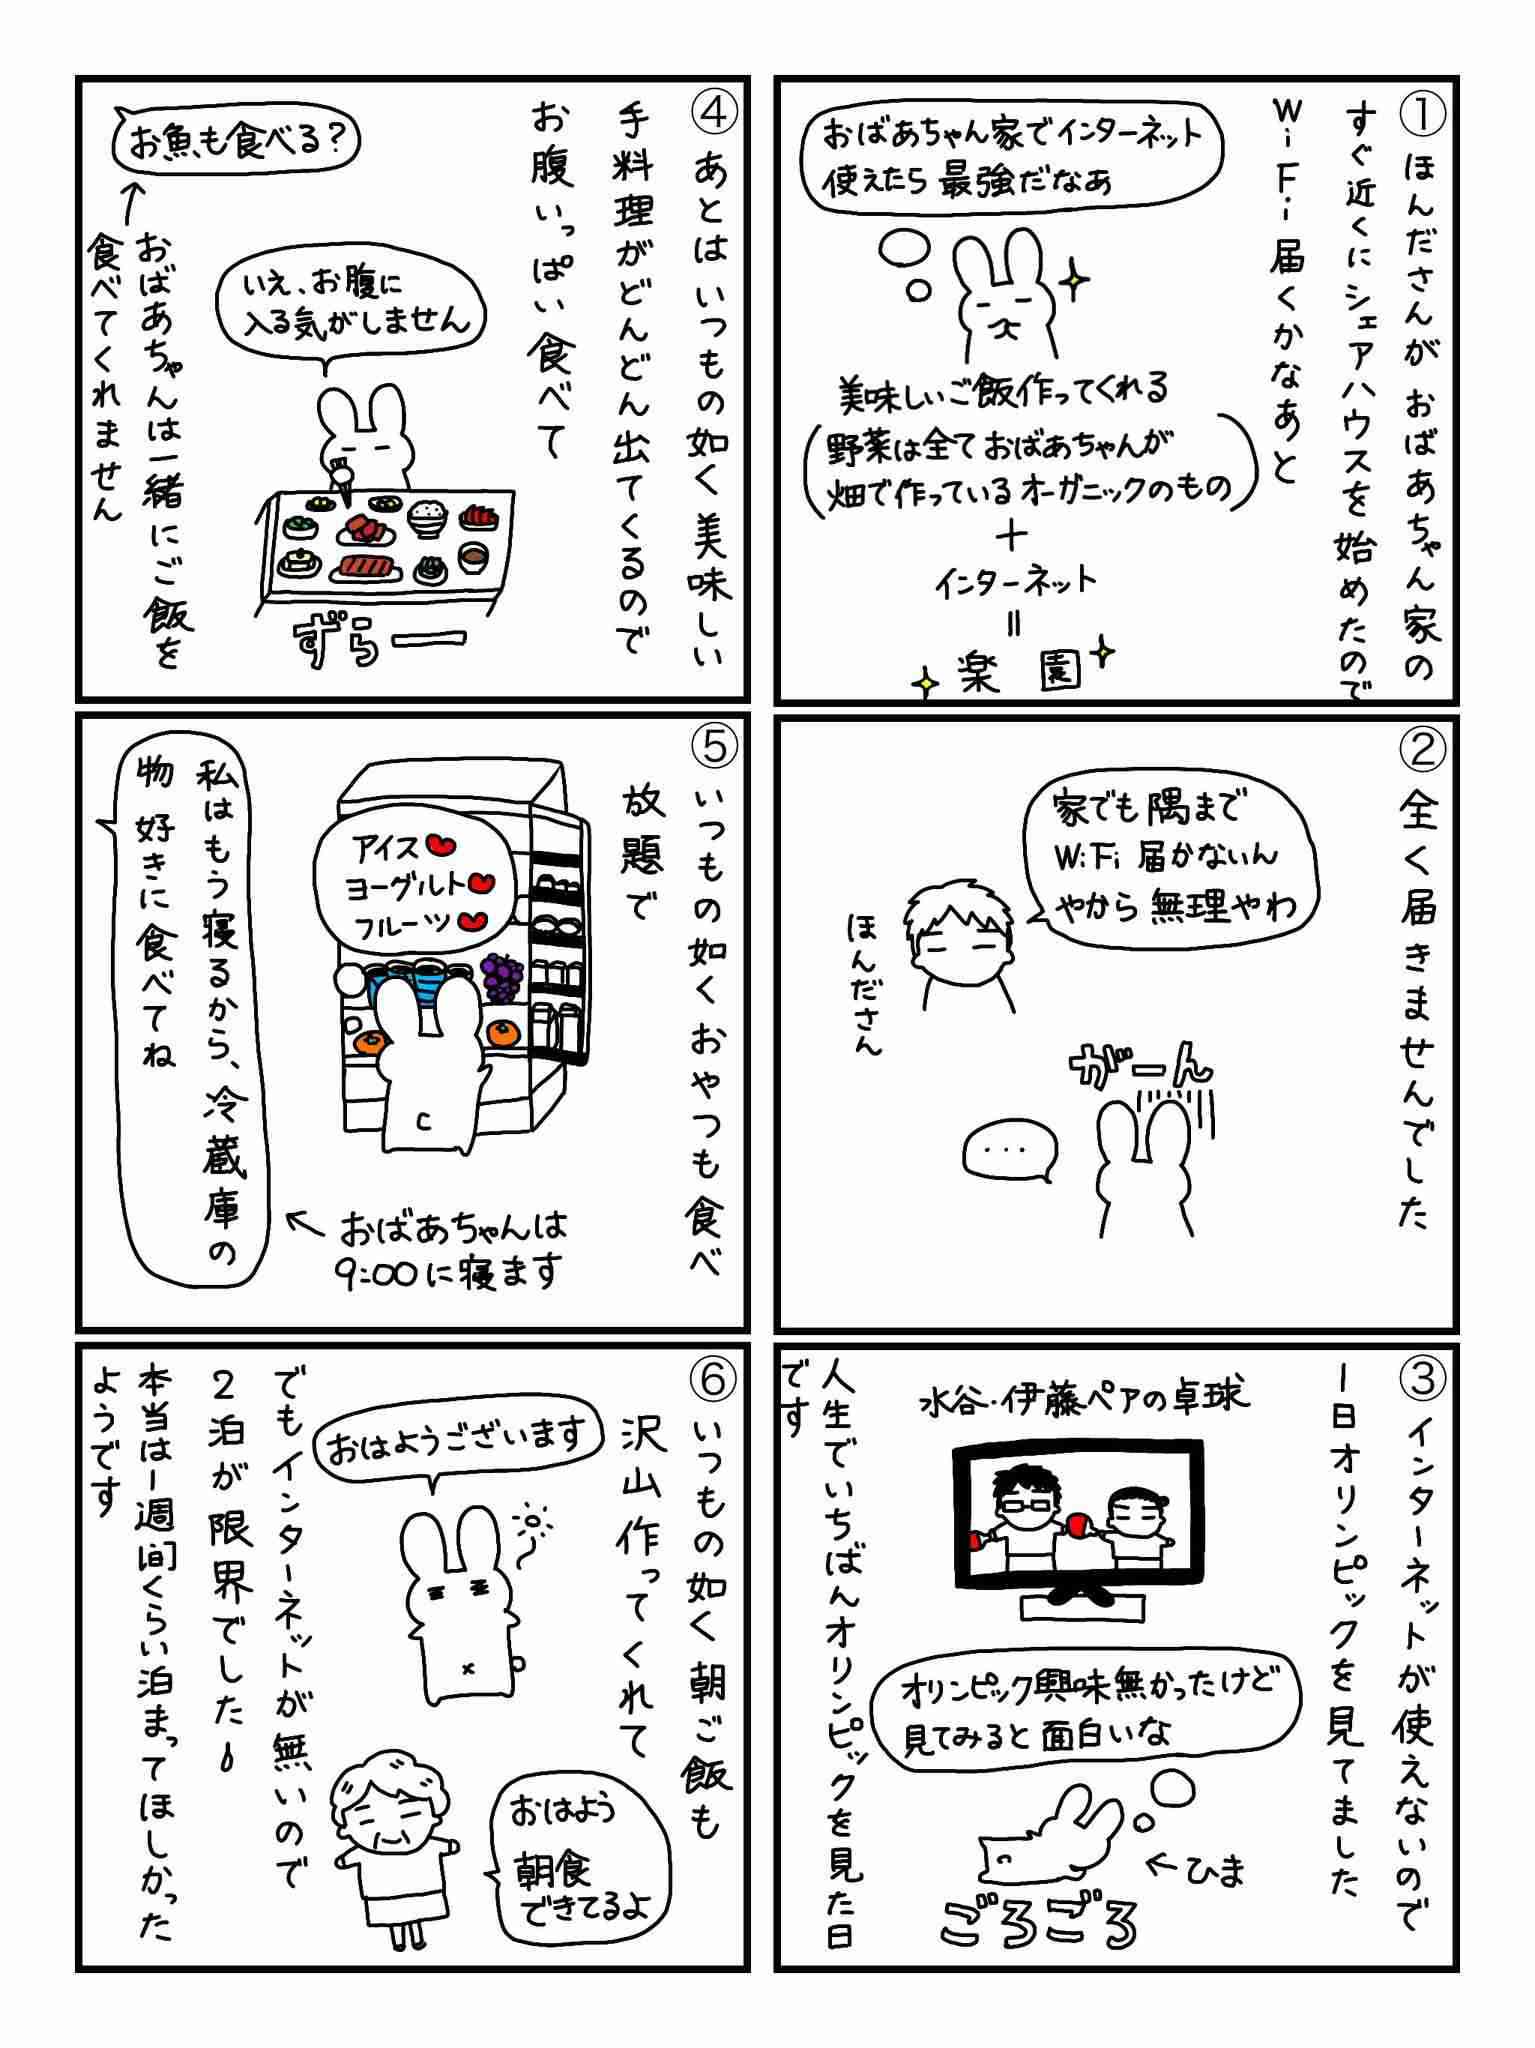 ①ほんださんがおばあちゃん家の
すぐ近くにシェアハウスを始めたので
WiFi届くかなあと
おばあちゃん家でインターネット
使えたら最強だなあ
美味しいご飯作ってくれる
(野菜は全ておばあちゃんが
畑で作っているオーガニックのもの)
+
インターネット
=
楽園
②全く届きませんでした
家でも隅まで
WiFi届かないん
やから無理やわ
ほんださん
がーん
...
③インターネットが使えないので
1日オリンピックを見てました
水谷・伊藤ペアの卓球
オリンピック興味無かったけど
見てみると面白いな
←ひま
ごろごろ
人生でいちばんオリンピックを見た日
です
④あとはいつもの如く美味しい
手料理がどんどん出てくるので
お腹いっぱい食べて
お魚も食べる?
いえ、お腹に
入る気がしません
ずらー
↑おばあちゃんは一緒にご飯を
食べてくれません
⑤いつもの如くおやつも食べ
放題で
アイス
ヨーグルト
フルーツ
私はもう寝るから、冷蔵庫の
物好きに食べてね
←おばあちゃんは
9:00に寝ます
⑥いつもの如く朝ご飯も
沢山作ってくれて
おはようございます
おはよう
朝食
できてるよ
でもインターネットが無いので
2泊が限界でした
本当は1週間くらい泊まってほしかった
ようです